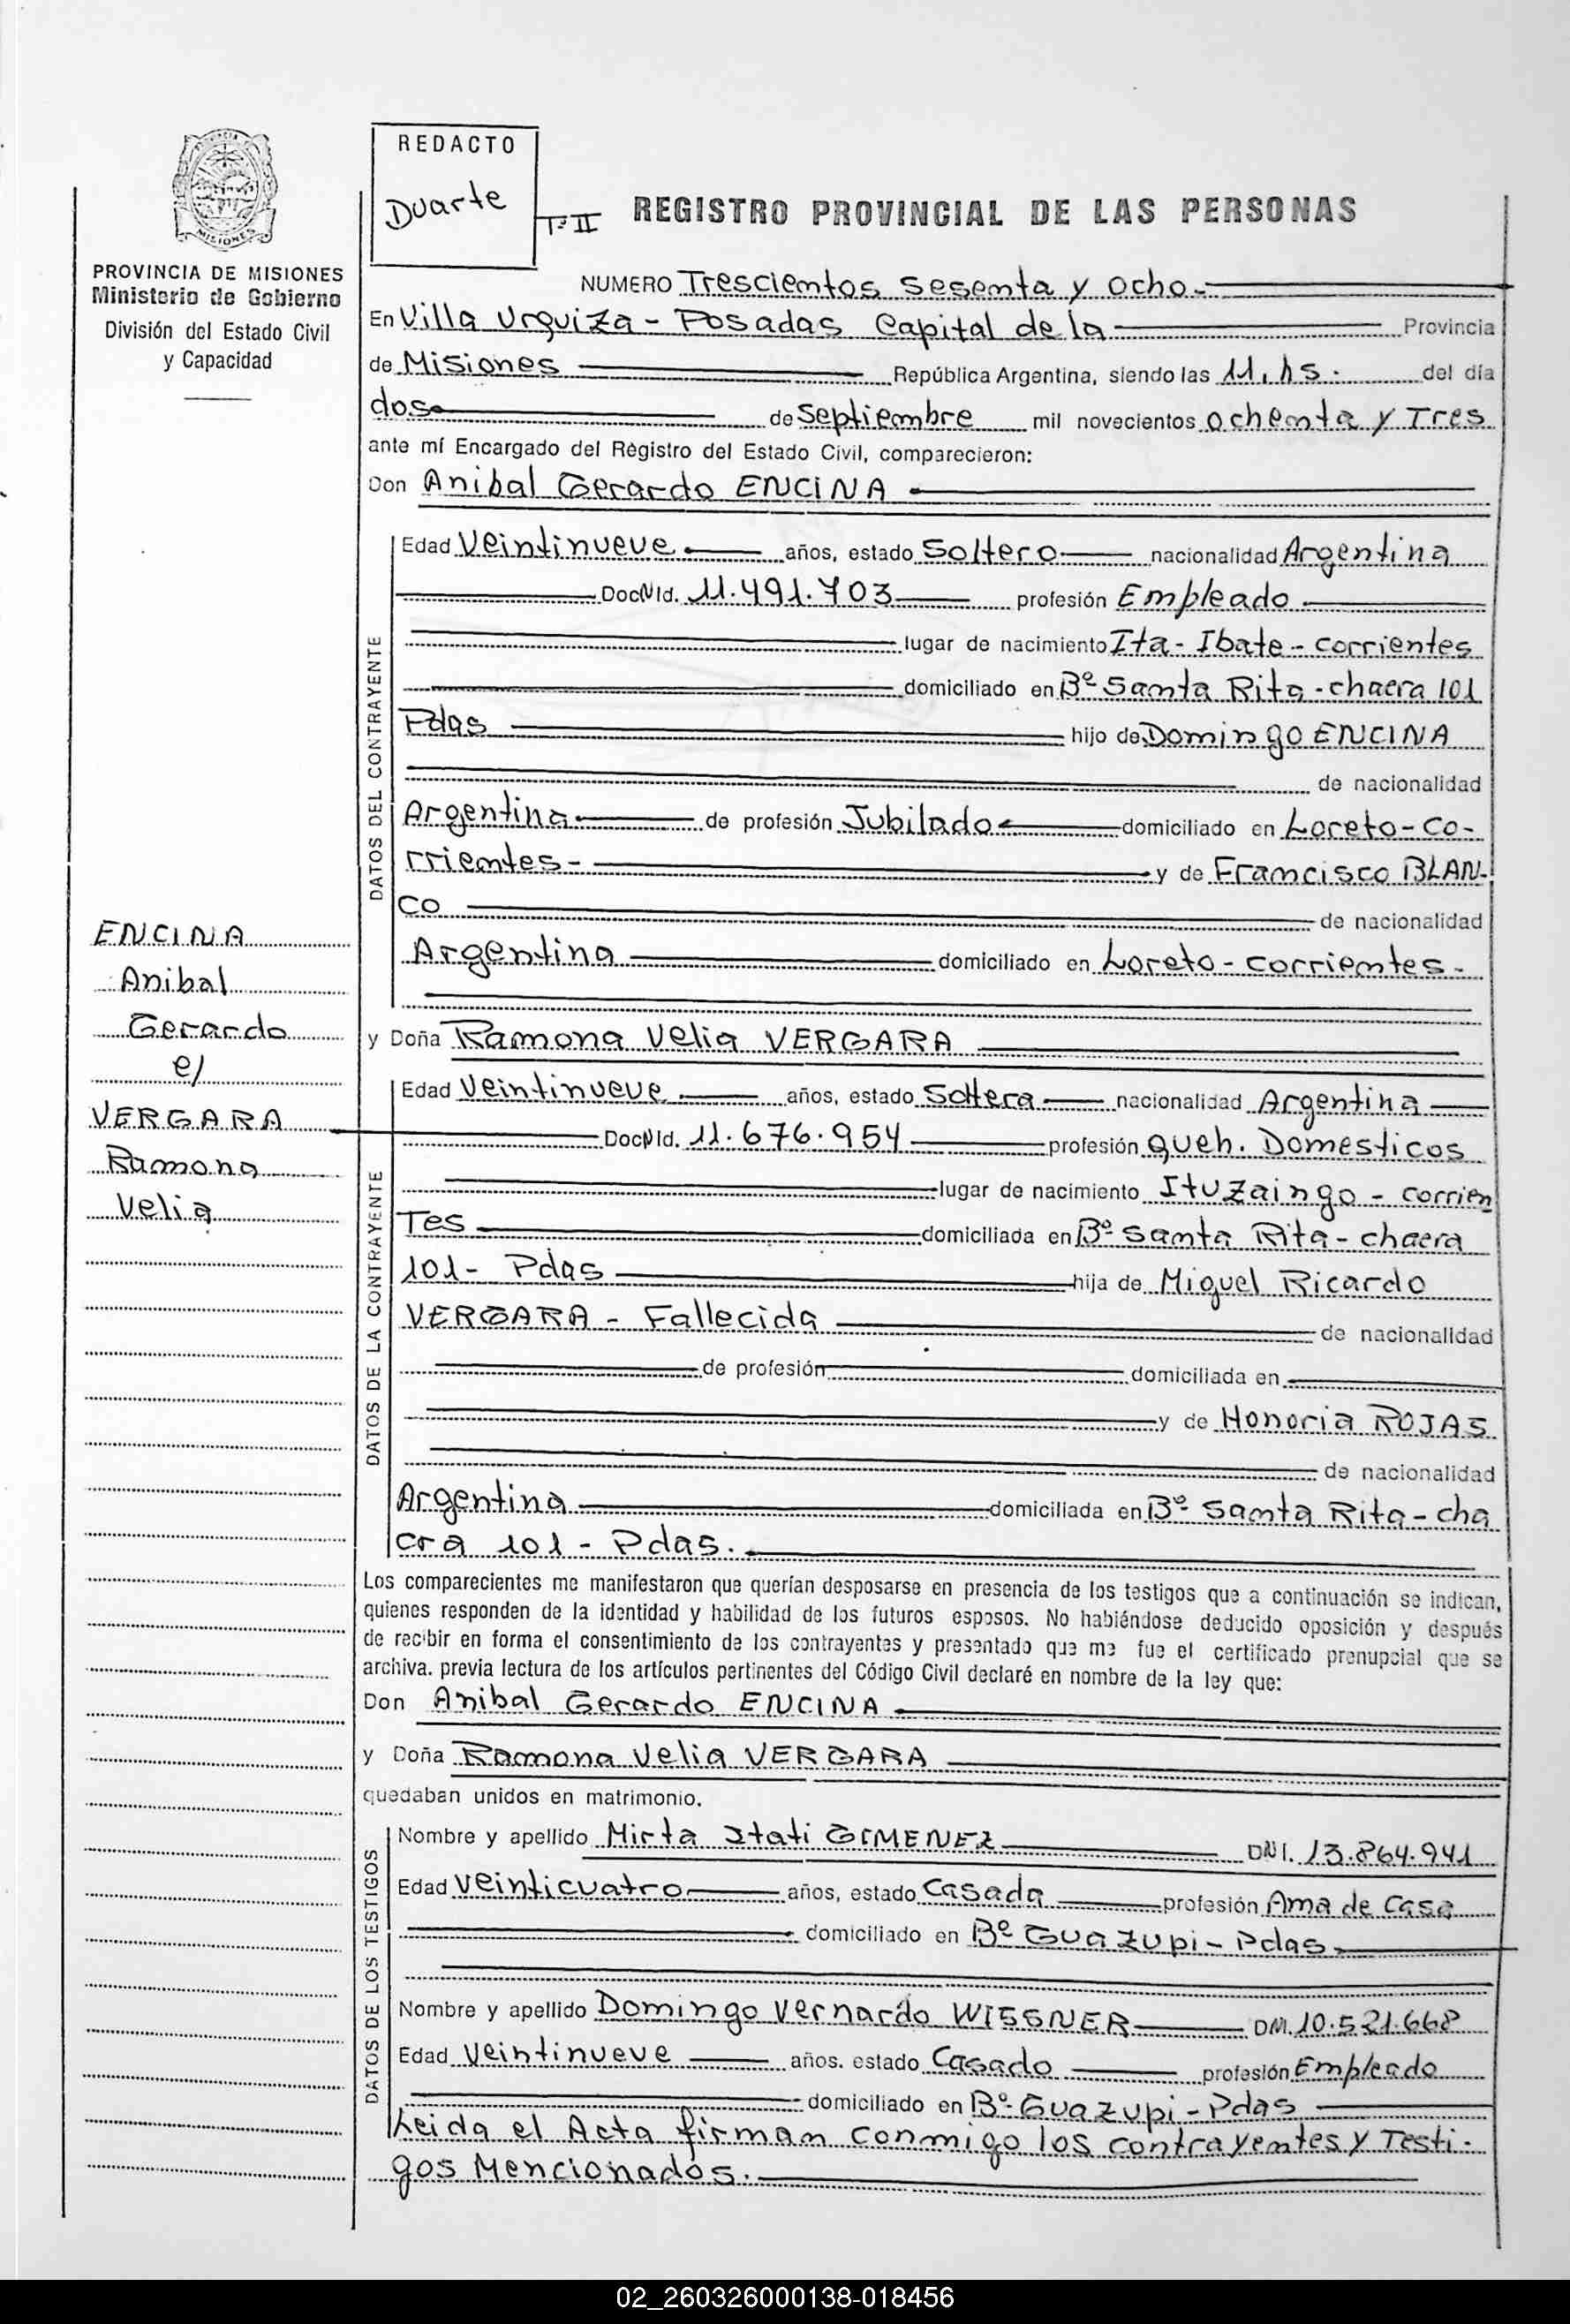 REDACTO
Duarte
Tº II
REGISTRO PROVINCIAL DE LAS PERSONAS
MISIONES
PROVINCIA DE MISIONES
Ministerio de Gobierno
División del Estado Civil
y Capacidad
NUMERO Trescientos sesenta y ocho.-
En Villa Urquiza - Posadas Capital de la Provincia
de Misiones República Argentina, siendo las 11,hs. del día
dos de septiembre mil novecientos ochenta y Tres
ante mí Encargado del Registro del Estado Civil, comparecieron:
Don Anibal Gerardo ENCINA
DATOS DEL CONTRAYENTE
Edad Veintinueve años, estado Soltero nacionalidad Argentina
Doc N Id. 11.491.703 profesión Empleado
lugar de nacimiento Ita - Ibate - corrientes
domiciliado en Bº Santa Rita - chacra 101
Pdas hijo de Domingo ENCINA
de nacionalidad
Argentina de profesión Jubilado domiciliado en Loreto - Co-
rrientes - y de Francisco BLAN-
co de nacionalidad
Argentina domiciliado en Loreto - corrientes -
ENCINA
Anibal
Gerardo
c/
VERGARA
Ramona
Velia
y Doña Ramona Velia VERGARA
DATOS DE LA CONTRAYENTE
Edad Veintinueve años, estado Soltera nacionalidad Argentina
Doc N Id. 11.676.954 profesión queh. Domesticos
lugar de nacimiento Ituzaingo - corrien
Tes domiciliada en Bº Santa Rita - chacra
101 - Pdas hija de Miguel Ricardo
VERGARA - Fallecida de nacionalidad
de profesión domiciliada en
y de Honoria ROJAS
de nacionalidad
Argentina domiciliada en Bº Santa Rita - cha
cra 101 - Pdas.
Los comparecientes me manifestaron que querían desposarse en presencia de los testigos que a continuación se indican,
quienes responden de la identidad y habilidad de los futuros esposos. No habiéndose deducido oposición y después
de recibir en forma el consentimiento de los contrayentes y presentado que me fue el certificado prenupcial que se
archiva. previa lectura de los artículos pertinentes del Código Civil declaré en nombre de la ley que:
Don Anibal Gerardo ENCINA
y Doña Ramona Velia VERGARA
quedaban unidos en matrimonio.
DATOS DE LOS TESTIGOS
Nombre y apellido Mirta Itati GIMENEZ DNI. 13.864.941
Edad Veinticuatro años, estado Casada profesión Ama de Casa
domiciliado en Bº Guazupi - Pdas.
Nombre y apellido Domingo Vernardo WISSNER DNI. 10.521.668
Edad Veintinueve años. estado Casado profesión Empleado
domiciliado en Bº Guazupi - Pdas
Leida el Acta firman conmigo los contrayentes y Testi-
gos Mencionados.
02_260326000138-018456